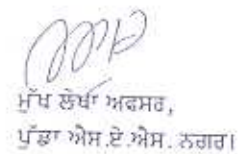 ਮੁੱਖ ਲੇਖਾ ਅਫਸਰ,
ਪੁੱਡਾ ਐਸ.ਏ.ਐਸ. ਨਗਰ।